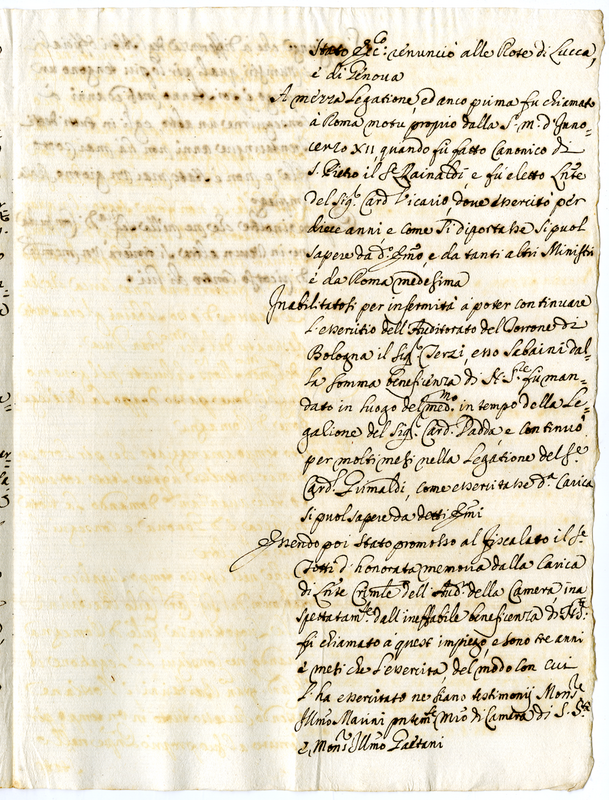 Stato Ecc.ᵃ renunciò alle Rote di Lucca,
e di Genova
A mezza Legatione, ed anco prima fu chiamato
à Roma motu proprio dalla S. m. d'Inno=
cenzo XII, quando fù fatto Canonico di
S. Pietro il Sʳ Rainaldi, e fu eletto Lnte
del Sigʳ Card. Vicario, dove essercitò per
diece anni e come si diportasse si puol
sapere da d.º Emo, e da tanti altri Ministri
e da Roma medesima
Inabilitatosi per infermità à poter continuare
l'essercitio dell'Auditorato del Torrone di
Bologna il Sigʳ Terzi, esso Sabaini dal=
la somma beneficienza di N. Sʳᵉ fù man=
dato in luogo del med.ᵐᵒ in tempo della Le=
gatione del Sigʳ Card. Dadda e continuò
per molti mesi nella Legatione del Sʳ
Cardˡ Grimaldi, come essercitasse dᵃ Carica
si puol sapere da detti Emi
Essendo poi stato promosso al Fiscalato il Sʳ
Zotti d'honorata memoria dalla Carica
di Lnte Crimˡᵉ dell'Audʳ della Camera ina
spettatamᵗᵉ dall'ineffabile beneficienza di N. Sʳ
fù chiamato à quest'impiego, e sono tre anni
e mesi che l'essercita, del modo con cui
l'ha essercitato ne siano testimonij Monsʳᵉ
Illmo Marini pntemᵗᵉ Mro di Camera di S. Sᵗᵃ
e, Monsʳ Illmo Gaetani